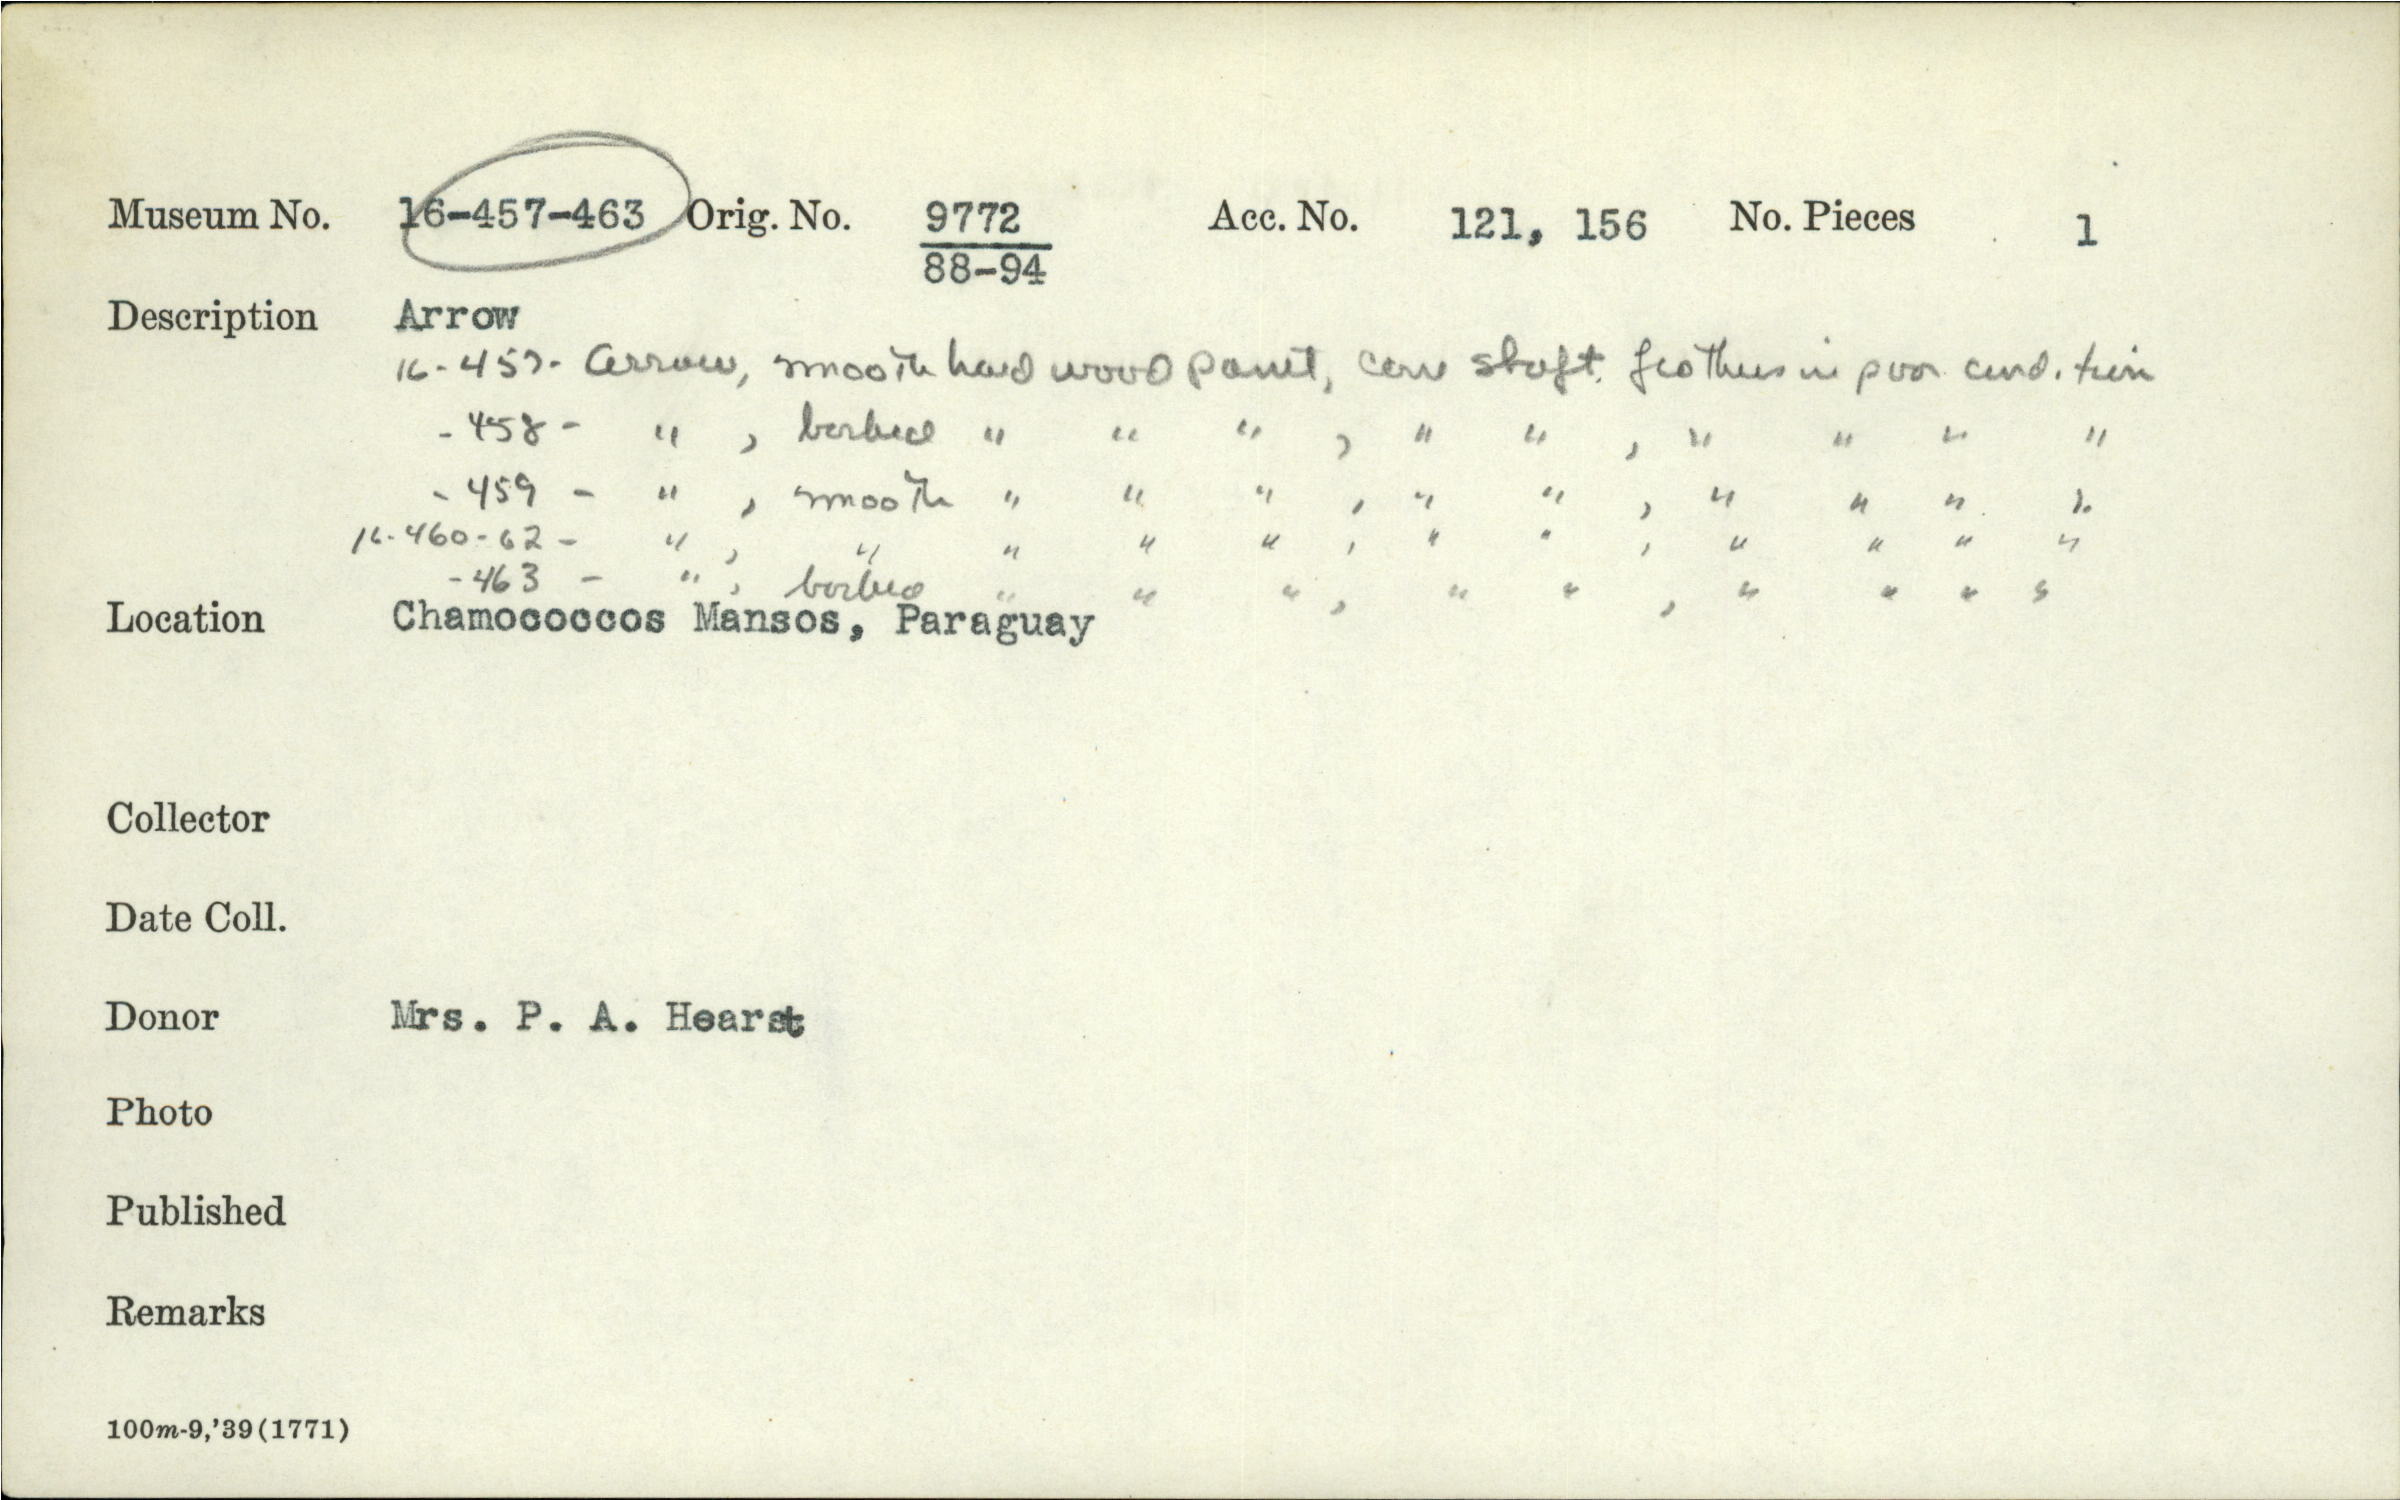 Museum No. 16-457-463 Orig. No. 9772 Acc. No. 121, 156 No. Pieces 1
88-94
Description Arrow
16-457- arrow, smooth hard wood point, cane shaft. feathers in poor condition
-458- " , barbed " " " , " " , " " " "
-459 - " , smooth " " " , " " , " " " "
16-460-62- " , " " " " , " " , " " " "
-463 - " , barbed " " " , " " , " " " "
Location Chamococcos Mansos, Paraguay
Collector
Date Coll.
Donor Mrs. P. A. Hearst
Photo
Published
Remarks
100m-9,'39(1771)